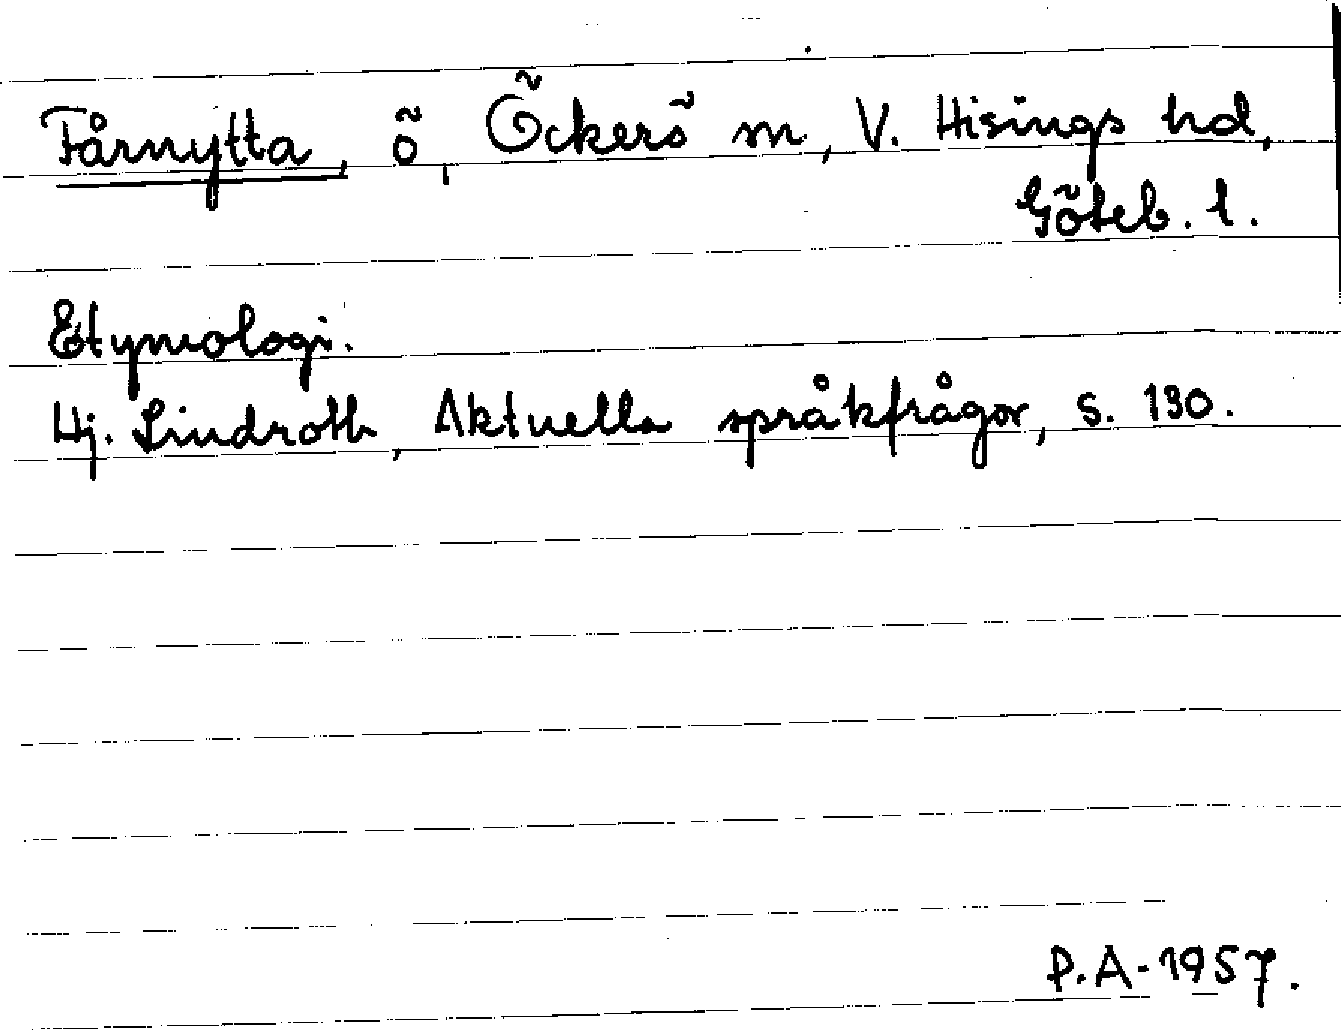 Fårnytta, ö, Öckerö sn, V. Hisings hd,
Göteb. l.
Etymologi.
Hj. Lindroth, Aktuella språkfrågor, s. 130.
P.A-1957.